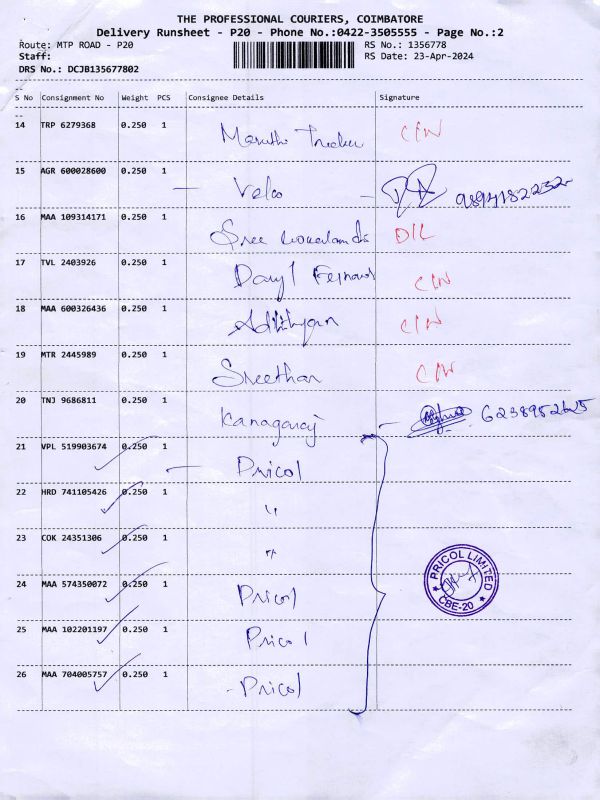 THE PROFESSIONAL COURIERS, COIMBATORE
Delivery Runsheet - P20 - Phone No.:0422-3505555 - Page No.:2
Route: MTP ROAD - P20 RS No.: 1356778
Staff: RS Date: 23-Apr-2024
DRS No.: DCJB135677802
S No Consignment No Weight PCS Consignee Details Signature
14 TRP 6279368 0.250 1
15 AGR 600028600 0.250 1 Velco
16 MAA 109314171 0.250 1 Sree D/L
17 TVL 2403926 0.250 1 Daryl
18 MAA 600326436 0.250 1
19 MTR 2445989 0.250 1 Sreethar
20 TNJ 9686811 0.250 1 Kanagaraj
21 VPL 519903674 0.250 1 Pricol
22 HRD 741105426 0.250 1 "
23 COK 24351306 0.250 1 "
24 MAA 574350072 0.250 1 Pricol
25 MAA 102201197 0.250 1 Pricol
26 MAA 704005757 0.250 1 Pricol
PRICOL LIMITED
CBE-20